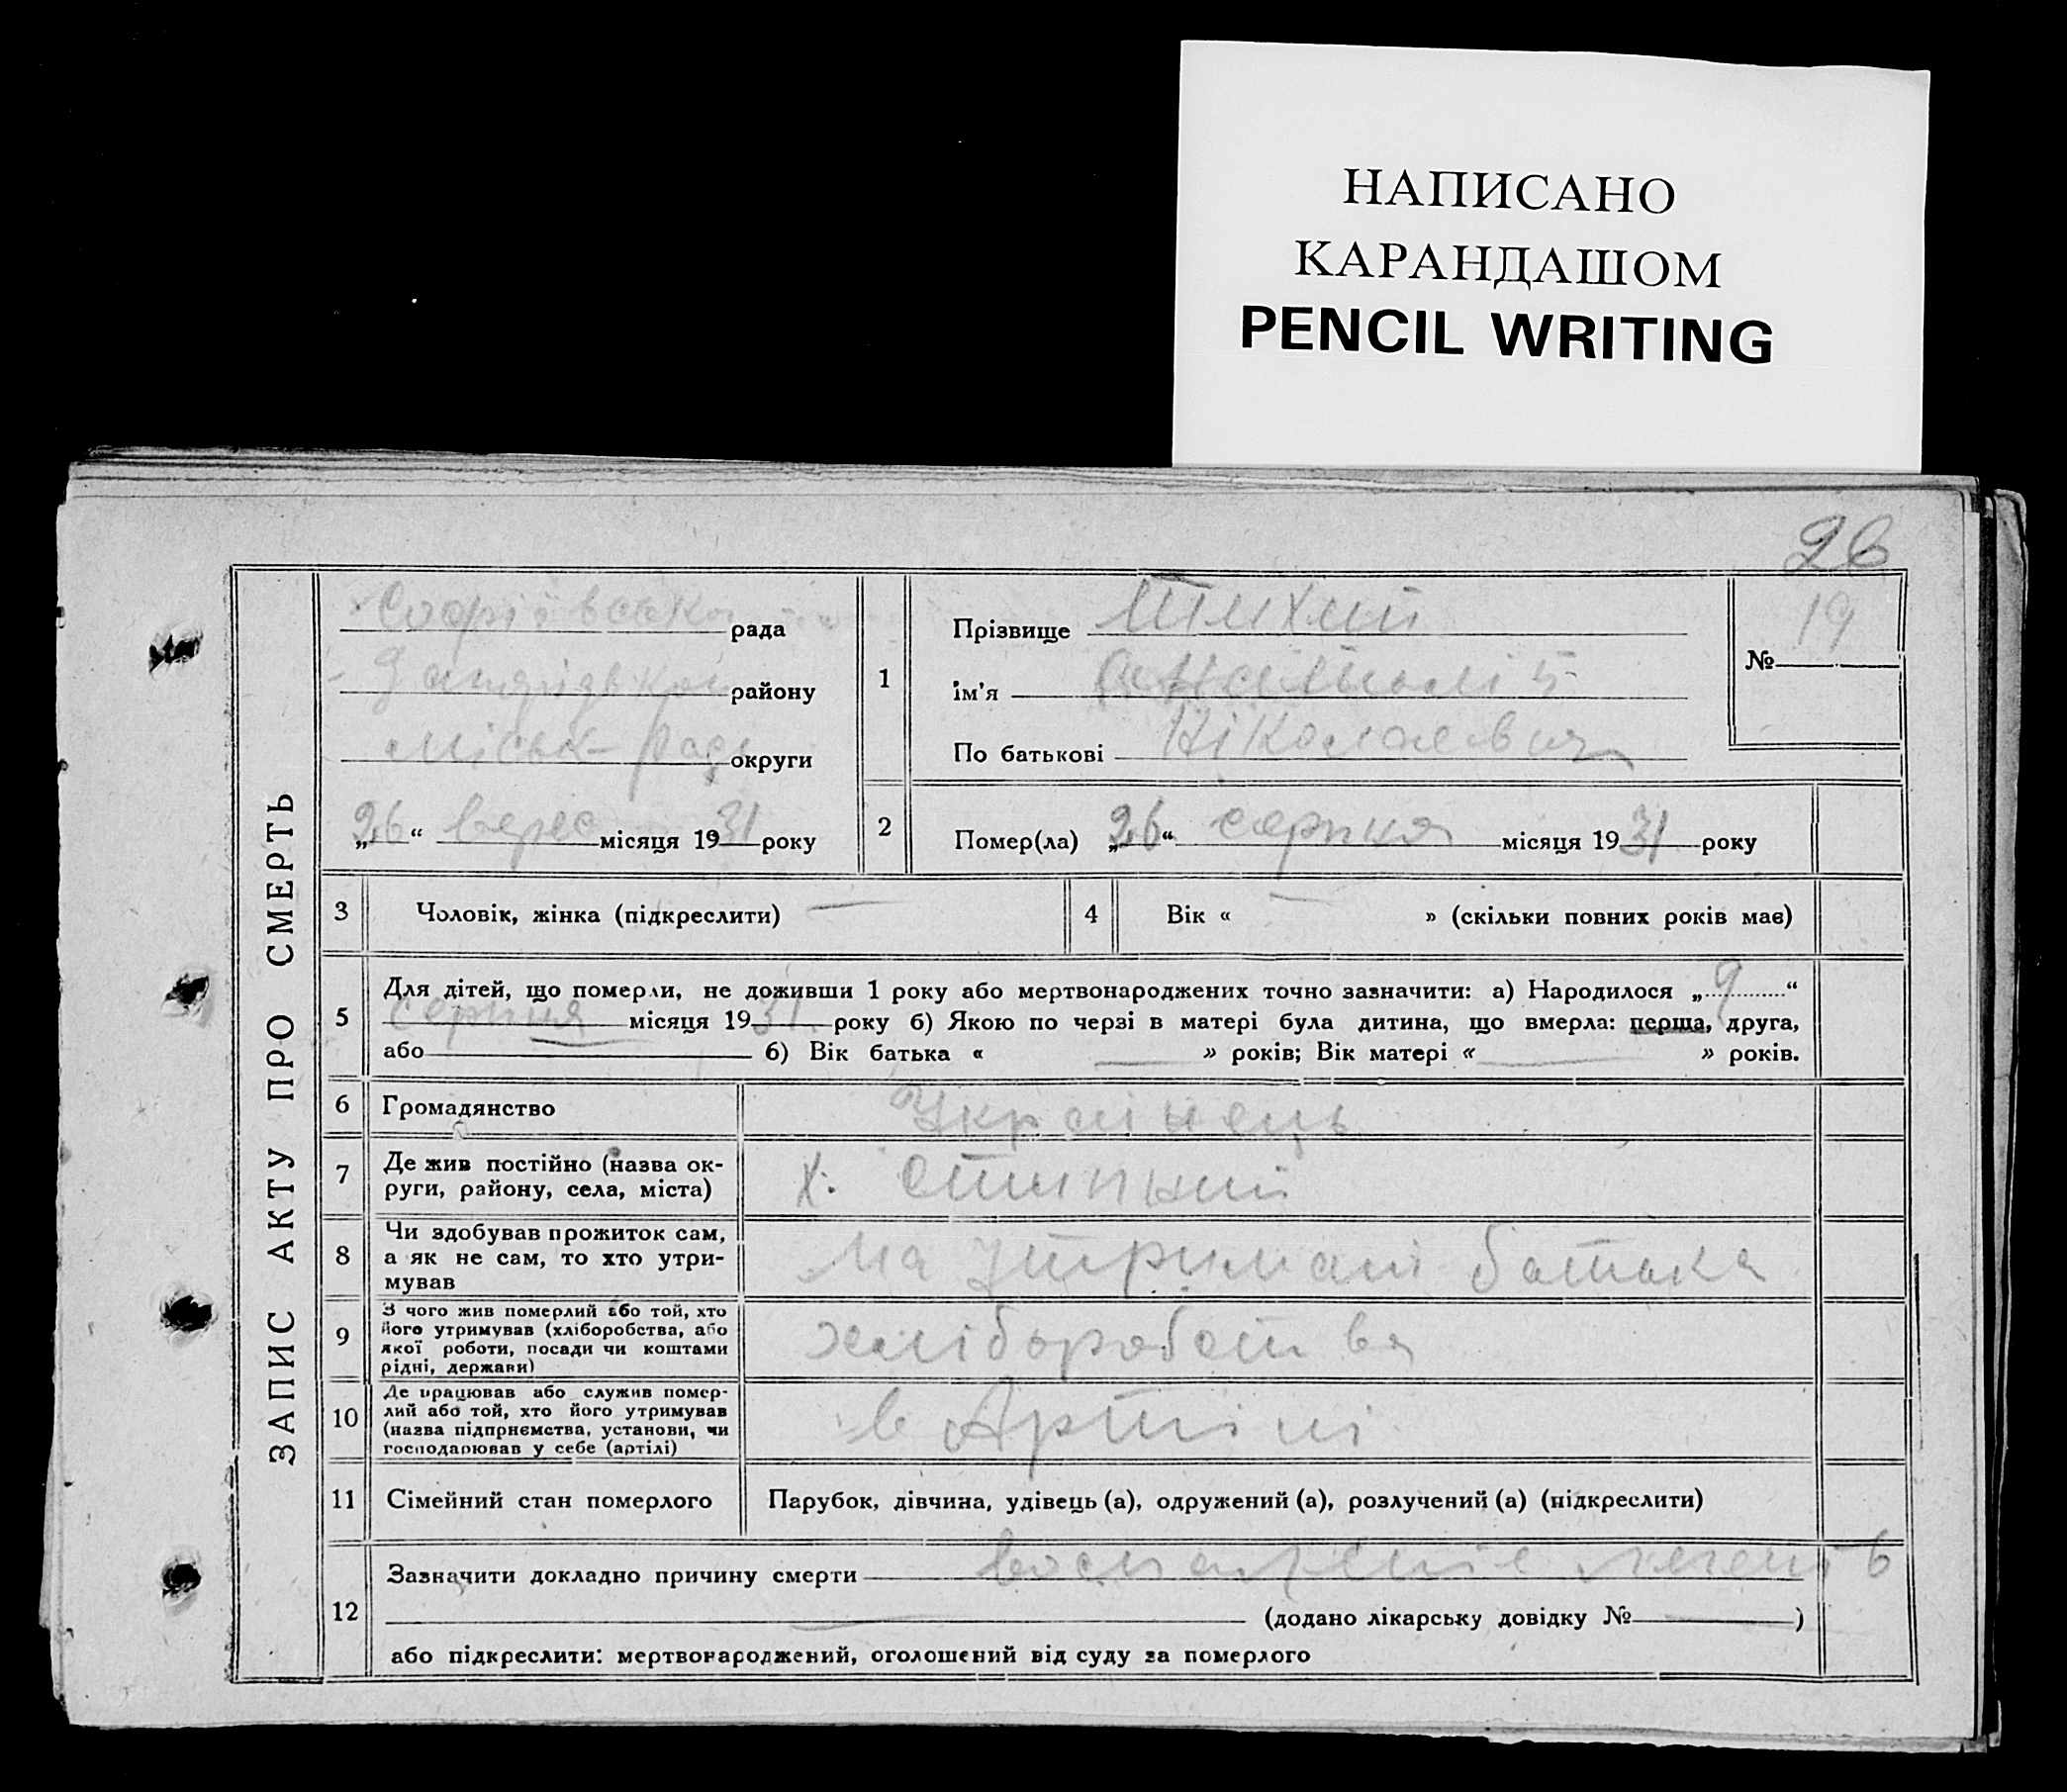 НАПИСАНО
КАРАНДАШОМ
PENCIL WRITING
26
ЗАПИС АКТУ ПРО СМЕРТЬ
Софіївська рада
району
міськ-рад округи
„26“ верес місяця 1931 року
1
Прізвище Тихий
ім'я Анатолій
По батькові Ніколаевич
№ 19
2
Помер(ла) „26“ серпня місяця 1931 року
3
Чоловік, жінка (підкреслити)
4
Вік « — » (скільки повних років має)
5
Для дітей, що померли, не доживши 1 року або мертвонароджених точно зазначити: а) Народилося „9“
серпня місяця 1931 року б) Якою по черзі в матері була дитина, що вмерла: перша, друга,
або б) Вік батька « — » років; Вік матері « — » років.
6
Громадянство
Українець
7
Де жив постійно (назва ок-
руги, району, села, міста)
х.
8
Чи здобував прожиток сам,
а як не сам, то хто утри-
мував
на утримані батька
9
З чого жив померлий або той, хто
його утримував (хліборобства, або
якої роботи, посади чи коштами
рідні, держави)
хліборобства
10
Де працював або служив помер-
лий або той, хто його утримував
(назва підприємства, установи, чи
господарював у себе (артілі)
в Артілі
11
Сімейний стан померлого
Парубок, дівчина, удівець (а), одружений (а), розлучений (а) (підкреслити)
12
Зазначити докладно причину смерти воспаленіе легенів
(додано лікарську довідку № )
або підкреслити: мертвонароджений, оголошений від суду за померлого